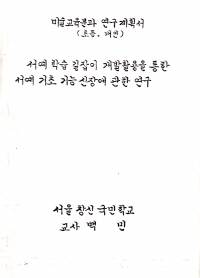 미술교육분과 연구계획서
(초등, 개인)
서예 학습 길잡이 개발활용을 통한
서예 기초 기능 신장에 관한 연구
서울 창신 국민학교
교사 백 민